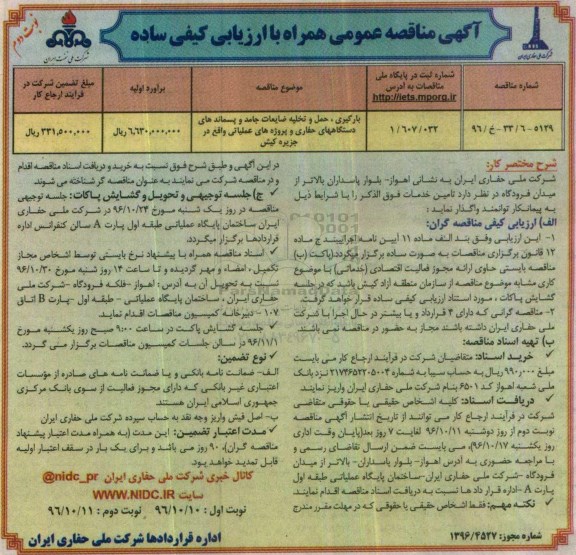 نوبت دوم
آگهی مناقصه عمومی همراه با ارزیابی کیفی ساده
شرکت ملی نفت ایران
شرکت ملی حفاری ایران
شماره مناقصه
شماره ثبت در پایگاه ملی مناقصات به آدرس http://iets.mporg.ir
موضوع مناقصه
برآورد اولیه
مبلغ تضمین شرکت در فرایند ارجاع کار
۹۶/خ - ۲۳/۶ - ۵۱۲۹
۱/۶۰۷/۰۳۲
بارگیری ، حمل و تخلیه ضایعات جامد و پسماند های دستگاههای حفاری و پروژه های عملیاتی واقع در جزیره کیش
۶,۶۳۰,۰۰۰,۰۰۰ ریال
۳۳۱,۵۰۰,۰۰۰ ریال
شرح مختصر کار:
شرکت ملی حفاری ایران به نشانی اهواز- بلوار پاسداران بالاتر از
میدان فرودگاه در نظر دارد تامین خدمات فوق الذکر را با شرایط ذیل
به پیمانکار توانمند واگذار نماید :
الف) ارزیابی کیفی مناقصه گران:
۱- این ارزیابی وفق بند الف ماده ۱۱ آیین نامه اجرایی بند ج ماده
۱۲ قانون برگزاری مناقصات به صورت ساده برگزار میگردد.(پاکت (ب)
مناقصه بایستی حاوی ارائه مجوز فعالیت اقتصادی (خدماتی) با موضوع
کاری مشابه موضوع مناقصه از سازمان منطقه آزاد کیش باشد که در جلسه
گشایش پاکات ، مورد استناد ارزیابی کیفی ساده قرار خواهد گرفت.
۲- مناقصه گرانی که دارای ۴ قرارداد و یا بیشتر در حال اجرا با شرکت
ملی حفاری ایران داشته باشند مجاز به حضور در مناقصه نمی باشند
ب) تهیه اسناد مناقصه:
✓ خرید اسناد: متقاضیان شرکت در فرآیند ارجاع کار می بایست
مبلغ ۹۹۰,۰۰۰ ریال به حساب سیبا به شماره ۲۱۷۴۶۵۲۲۰۵۰۰۴ نزد بانک
ملی شعبه اهواز کد ۶۵۰۱ بنام شرکت ملی حفاری ایران واریز نمایند
✓ دریافت اسناد: کلیه اشخاص حقیقی یا حقوقی متقاضی
شرکت در فرآیند ارجاع کار می توانند از تاریخ انتشار آگهی مناقصه
نوبت دوم از روز دوشنبه ۹۶/۱۰/۱۱ لغایت ۷ روز بعد(پایان وقت اداری
روز یکشنبه ۹۶/۱۰/۱۷)، می بایست ضمن ارسال تقاضای رسمی و
با مراجعه حضوری به آدرس اهواز- بلوار پاسداران- بالاتر از میدان
فرودگاه -شرکت ملی حفاری ایران-ساختمان پایگاه عملیاتی طبقه اول
پارت A -اداره قرار داد ها نسبت به دریافت اسناد مناقصه اقدام نمایند.
✓ نکته مهم: فقط اشخاص حقیقی یا حقوقی که در مهلت مقرر مندرج
در این آگهی و طبق شرح فوق نسبت به خرید و دریافت اسناد مناقصه اقدام
و در مناقصه شرکت می نمایند به عنوان مناقصه گر شناخته می شوند
✓ ج) جلسه توجیهی و تحویل و گشایش پاکات: جلسه توجیهی
مناقصه در روز یک شنبه مورخ ۹۶/۱۰/۲۴ در شرکت ملی حفاری
ایران ساختمان پایگاه عملیاتی طبقه اول پارت A سالن کنفرانس اداره
قراردادها برگزار میگردد.
✓ اسناد مناقصه همراه با پیشنهاد نرخ بایستی توسط اشخاص مجاز
تکمیل ، امضاء و مهر گردیده و تا ساعت ۱۴ روز شنبه مورخ ۹۶/۱۰/۳۰
نسبت به تحویل آن به آدرس : اهواز -فلکه فرودگاه -شرکت ملی
حفاری ایران ، ساختمان پایگاه عملیاتی - طبقه اول -پارت B اتاق
۱۰۷ -دبیرخانه کمیسیون مناقصات اقدام نماید
✓ جلسه گشایش پاکت در ساعت ۹:۰۰ صبح روز یکشنبه مورخ
۹۶/۱۱/۱ در سالن جلسات کمیسیون مناقصات برگزار می گردد.
✓ نوع تضمین:
الف- ضمانت نامه بانکی و یا ضمانت نامه های صادره از مؤسسات
اعتباری غیر بانکی که دارای مجوز فعالیت از سوی بانک مرکزی
جمهوری اسلامی ایران هستند
ب- اصل فیش واریز وجه نقد به حساب سپرده شرکت ملی حفاری ایران
✓ مدت اعتبار تضمین: این مدت (به همراه مدت اعتبار پیشنهاد
مناقصه گران)، ۹۰ روز می باشد و برای یک بار در سقف اعتبار اولیه
قابل تمدید خواهد بود.
کانال خبری شرکت ملی حفاری ایران @nidc_pr
سایت WWW.NIDC.IR
نوبت اول : ۹۶/۱۰/۱۰ نوبت دوم : ۹۶/۱۰/۱۱
شماره مجوز: ۱۳۹۶/۴۵۲۷
اداره قراردادها شرکت ملی حفاری ایران